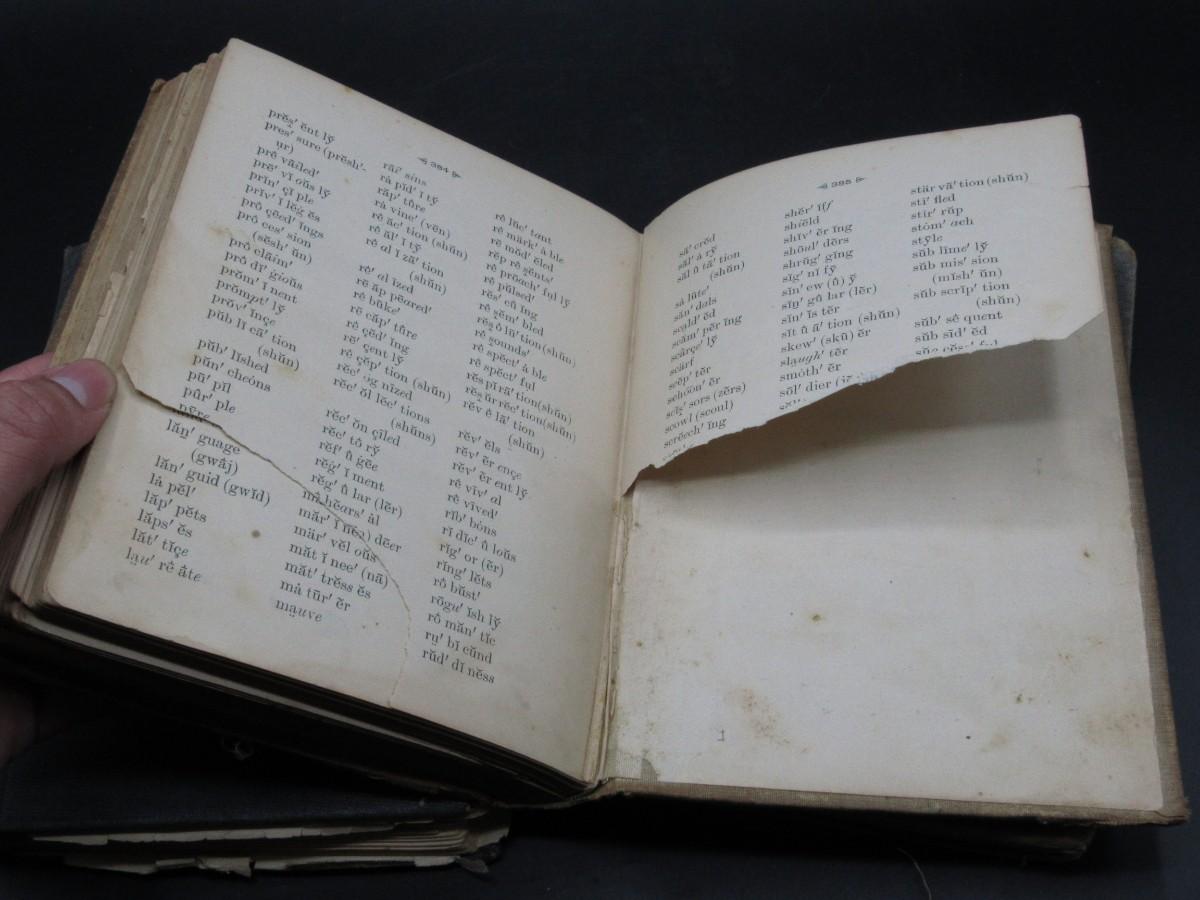 384
prĕs̱′ ĕnt lў
pres′ sure (prĕsh′-
ụr)
prê vāiled′
prē′ vĭ oŭs lў
prĭn′ çĭ ple
prĭv′ ĭ lĕġ ĕs
prô çēed′ ĭngs
prô ces′ sion
(sĕsh′ ŭn)
prô clāim′
prô dĭ′ ġioŭs
prŏm′ ĭ nent
prŏmpt′ lў
prŏv′ ĭnçe
pŭb lĭ cā′ tion
(shŭn)
pŭb′ lĭshed
pŭn′ cheóns
pū′ pĭl
pûr′ ple
lăṉ′ guage
(gwâj)
lăṉ′ guid (gwĭd)
lȧ pĕl′
lăp′ pĕts
lăps′ ĕs
lăt′ tĭçe
lạu′ rê âte
rāi′ s̱ins
rȧ pĭd′ ĭ tў
răp′ tûre
rȧ vine′ (vēn)
rê ăc′ tion (shŭn)
rê ăl′ ĭ tў
rê al ĭ zā′ tion
(shŭn)
rē′ al īzed
rê ăp pēared′
rê būke′
rê căp′ tûre
rê çēd′ ĭng
rē′ çent lў
rê çĕp′ tion (shŭn)
rĕc′ ŏg nīzed
rĕc′ ŏl lĕc′ tions
(shŭns)
rĕc′ ŏn çīled
rĕc′ tô rў
rĕf′ û ġēe
rĕġ′ ĭ ment
rĕg′ û lar (lẽr)
mȧ hĕars′ ȧl
mär′ vĕl oŭs
măt ĭ nee′ (nā)
măt′ trĕss ĕs
mȧ tūr′ ẽr
mạuve
rê lŭc′ tant
rê märk′ ȧ ble
rê mŏd′ ĕled
rĕp rê s̱ĕnts′
rê prōach′ ful lў
rê pŭlsed′
rĕs′ cû ĭng
rê s̱ĕm′ bled
rĕs̱ ô lū′ tion (shŭn)
rê s̱ounds′
rê spĕct′ ȧ ble
rê spĕct′ ful
rĕs pĭ rā′ tion (shŭn)
rĕs̱ ûr rĕc′ tion (shŭn)
rĕv ê lā′ tion
(shŭn)
rĕv′ ĕls
rĕv′ ẽr ençe
rĕv′ ẽr ent lў
rê vīv′ al
rê vīved′
rĭb′ bóns
rĭ dĭc′ û loŭs
rĭg′ or (ẽr)
rĭng′ lĕts
rô bŭst′
rōgu′ ĭsh lў
rô măn′ tĭc
rụ′ bĭ cŭnd
rŭd′ dĭ nĕss
385
sā′ crĕd
săl′ ȧ rў
săl û tā′ tion
(shŭn)
sȧ lūte′
săn′ dals
scạld′ ĕd
scăm′ pẽr ĭng
scârçe′ lў
scärf
scĕp′ tẽr
schōōn′ ẽr
scĭs̱′ sors (zẽrs)
scowl (scoul)
scrēech′ ĭng
shĕr′ ĭff
shiēld
shĭv′ ẽr ĭng
shōul′ dẽrs
shrŭg′ gĭng
sĭg′ nĭ fȳ
sĭn′ ew (û) ў
sĭṉ′ gû lar (lẽr)
sĭn′ ĭs tẽr
sĭt û ā′ tion (shŭn)
skew′ (skū) ẽr
slạugh′ tẽr
smóth′ ẽr
stär vā′ tion (shŭn)
stī′ fled
stĭr′ rŭp
stóm′ ach
stȳle
sŭb līme′ lў
sŭb mis′ sion
(mĭsh′ ŭn)
sŭb scrĭp′ tion
(shŭn)
sŭb′ sê quent
sŭb sīd′ ĕd